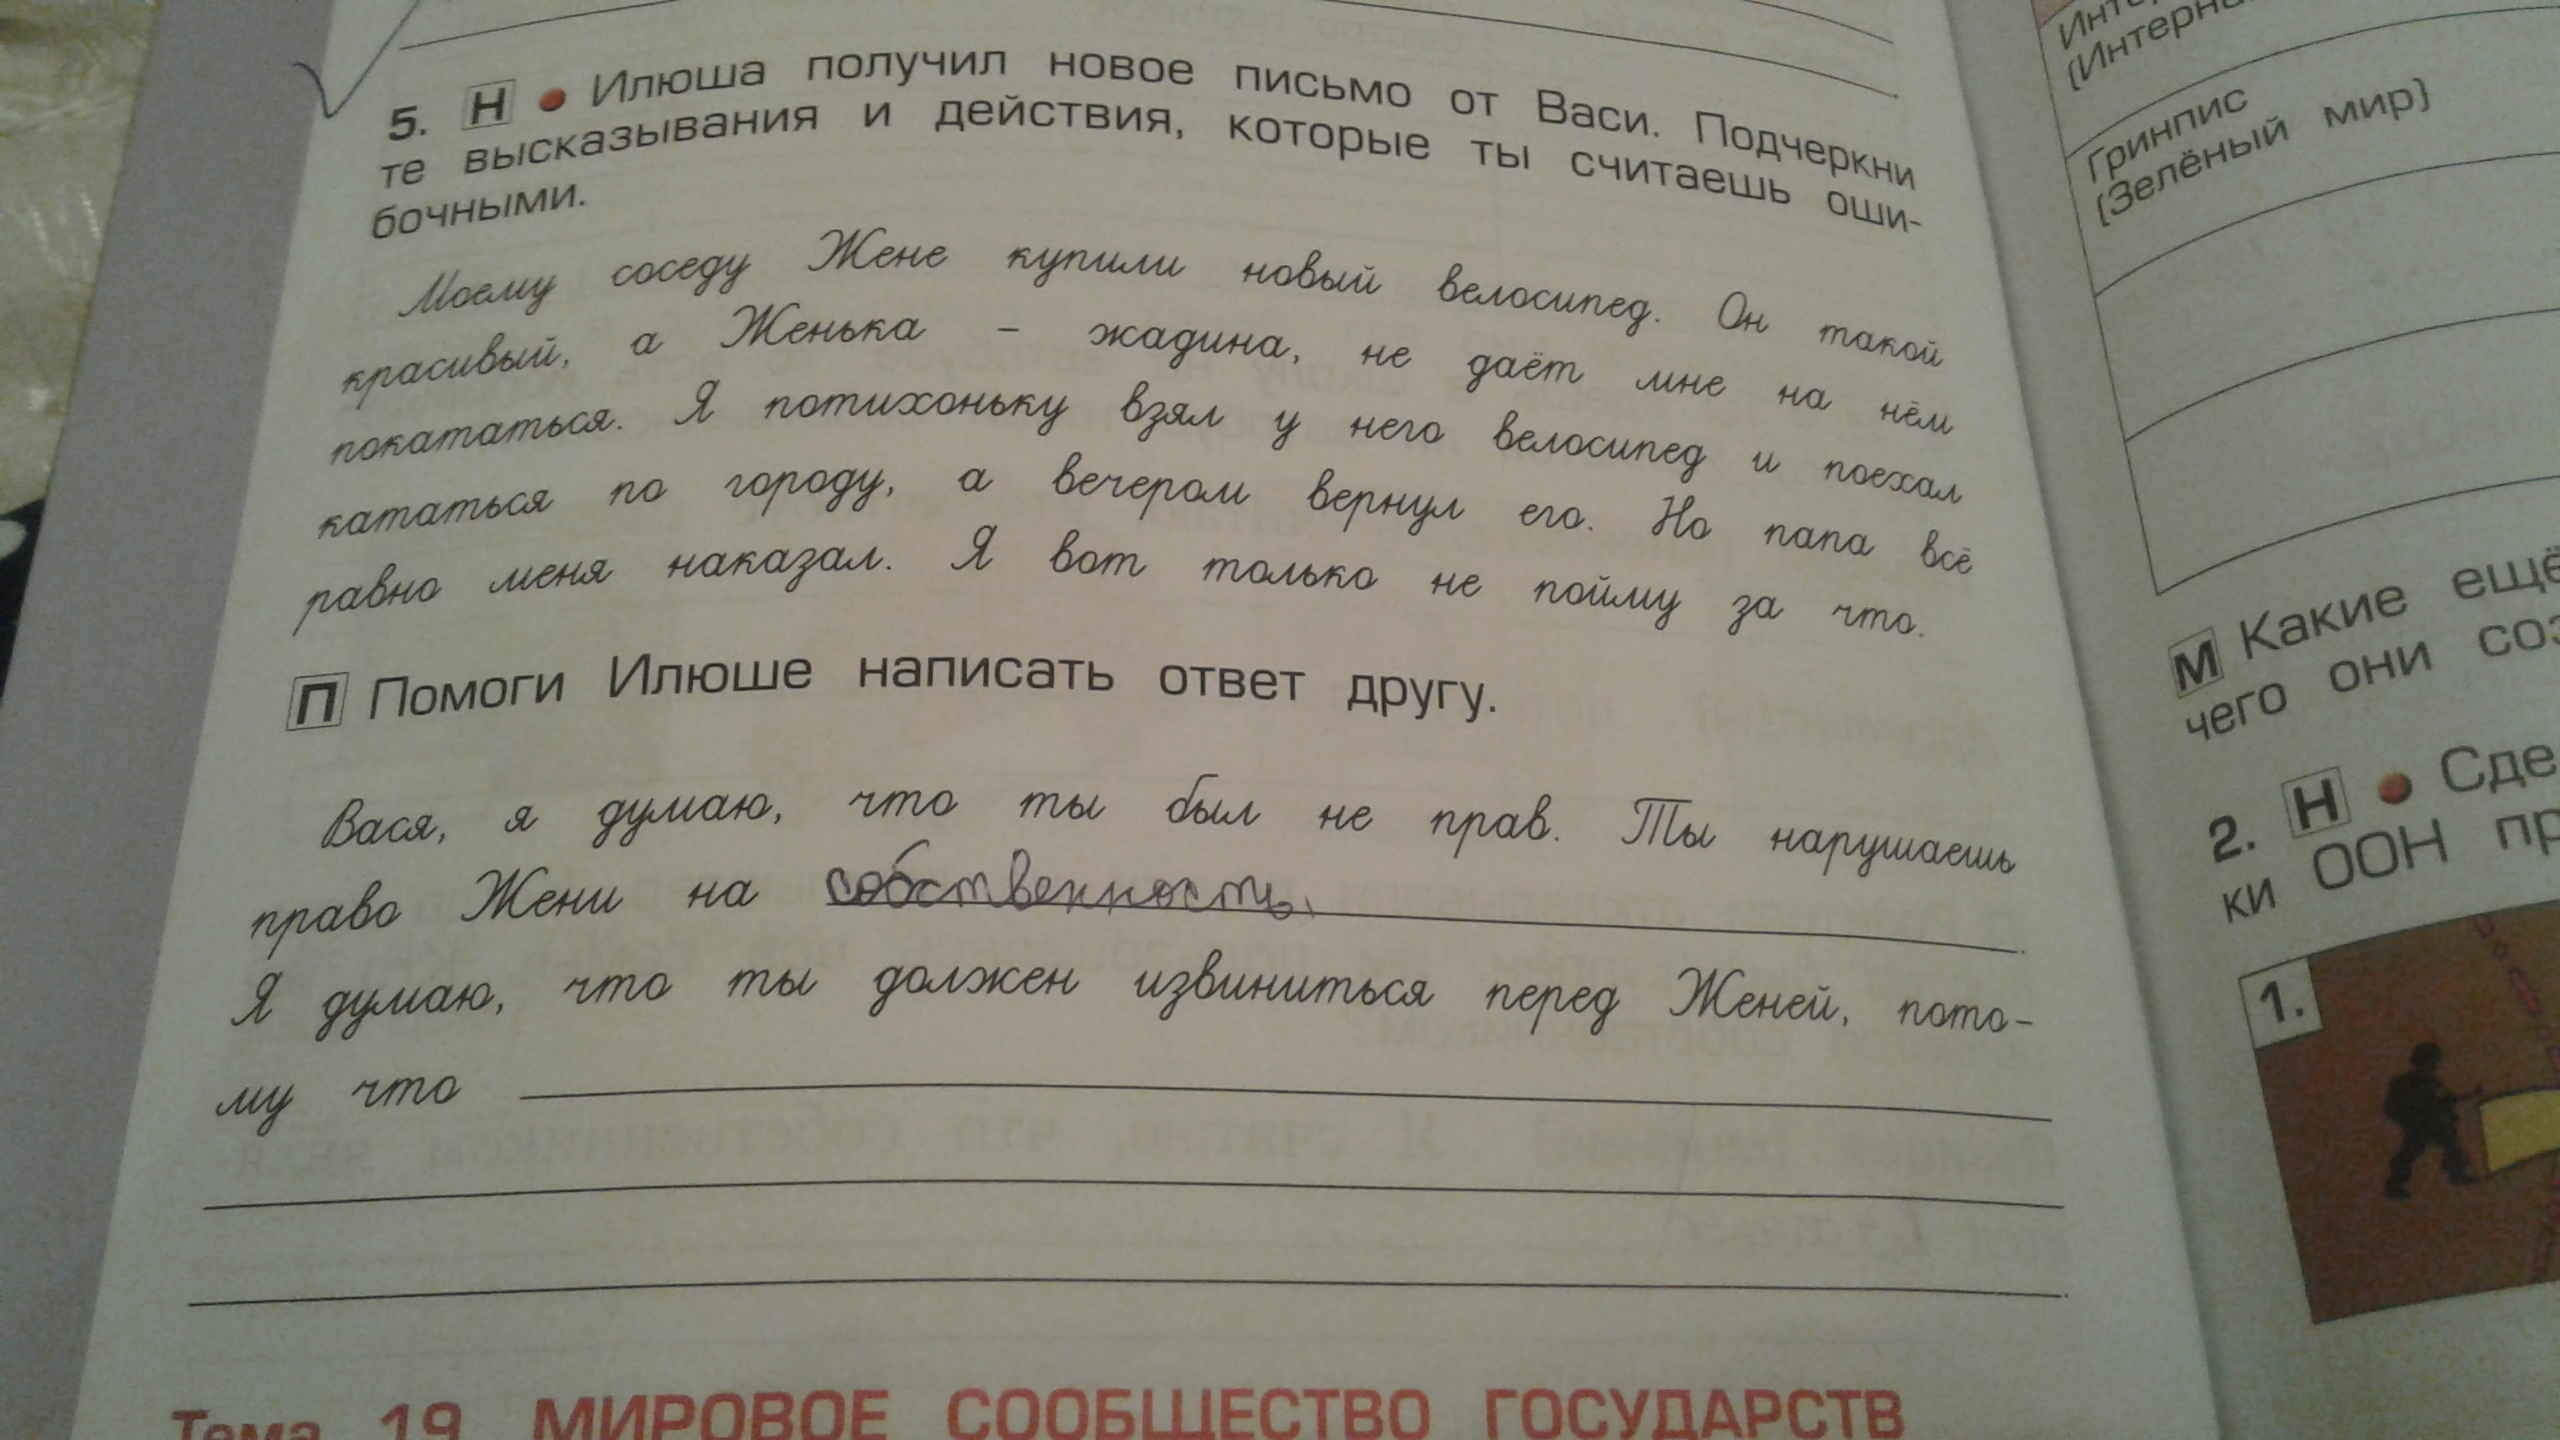 5. Н • Илюша получил новое письмо от Васи. Подчеркни
те высказывания и действия, которые ты считаешь оши-
бочными.
Моему соседу Жене купили новый велосипед. Он такой
красивый, а Женька – жадина, не даёт мне на нём
покататься. Я потихоньку взял у него велосипед и поехал
кататься по городу, а вечером вернул его. Но папа всё
равно меня наказал. Я вот только не пойму за что.
П Помоги Илюше написать ответ другу.
Вася, я думаю, что ты был не прав. Ты нарушаешь
право Жени на собственность.
Я думаю, что ты должен извиниться перед Женей, пото-
му что
Тема 19 МИРОВОЕ СООБЩЕСТВО ГОСУДАРСТВ
Гринпис
(Зелёный мир)
М Какие ещё
чего они
2. Н • Сде
ки ООН пр
1.